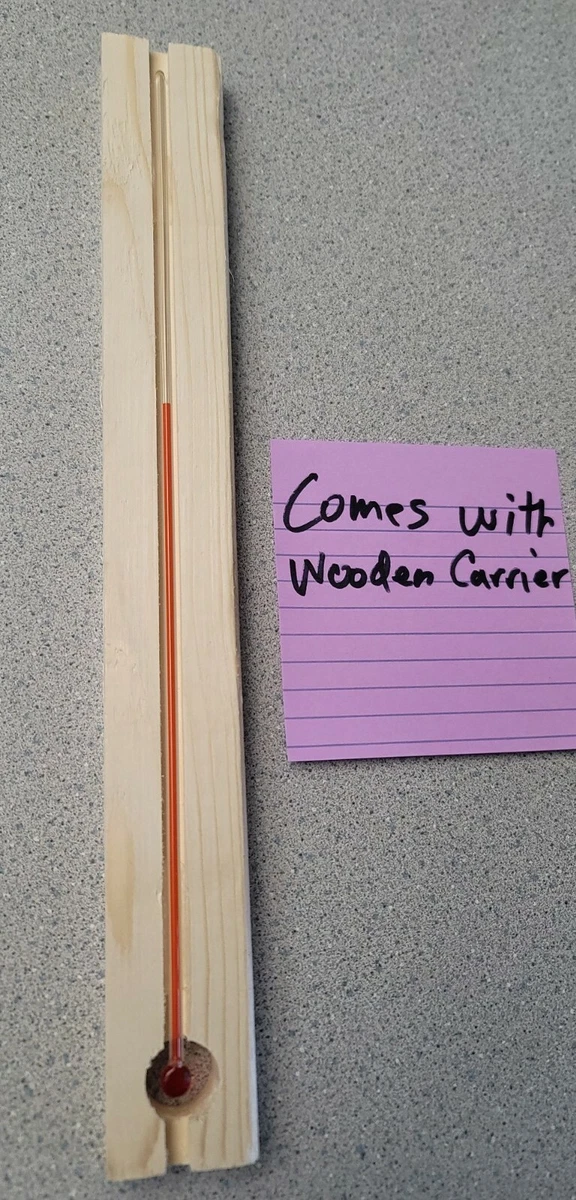 Comes with
Wooden Carrier